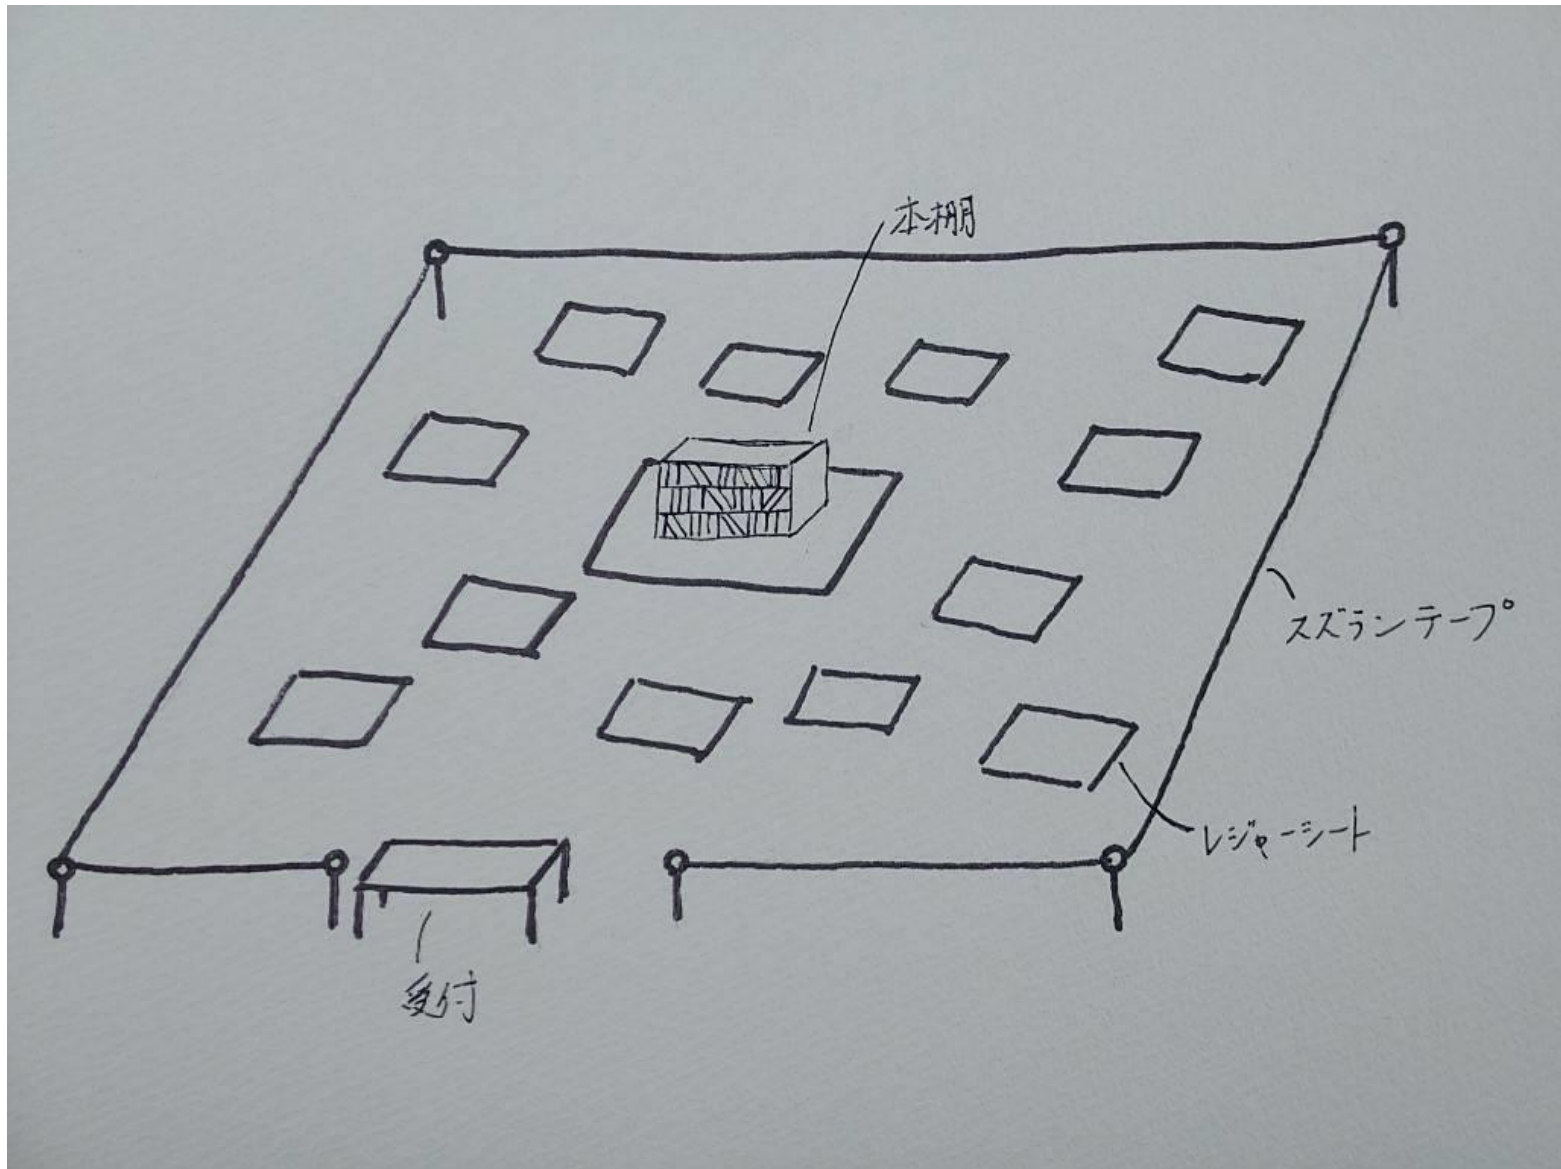 本棚
スズランテープ
レジャーシート
受付